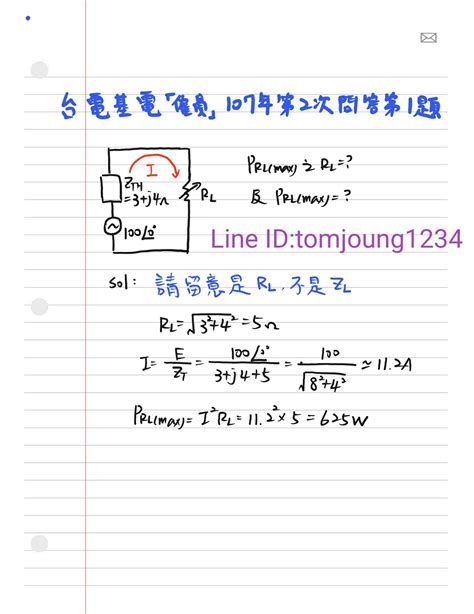 台電基電「僱員」107年第2次問答第1題
I
ZTH
=3+j4Ω
RL
100∠0°
PRL(max) 之 RL=?
及 PRL(max)=?
Line ID:tomjoung1234
sol: 請留意是 RL, 不是 ZL
RL=√3²+4² =5Ω
I= E/ZT = 100∠0°/3+j4+5 = 100/√8²+4² ≈ 11.2A
PRL(max)= I²RL = 11.2²×5 = 625W